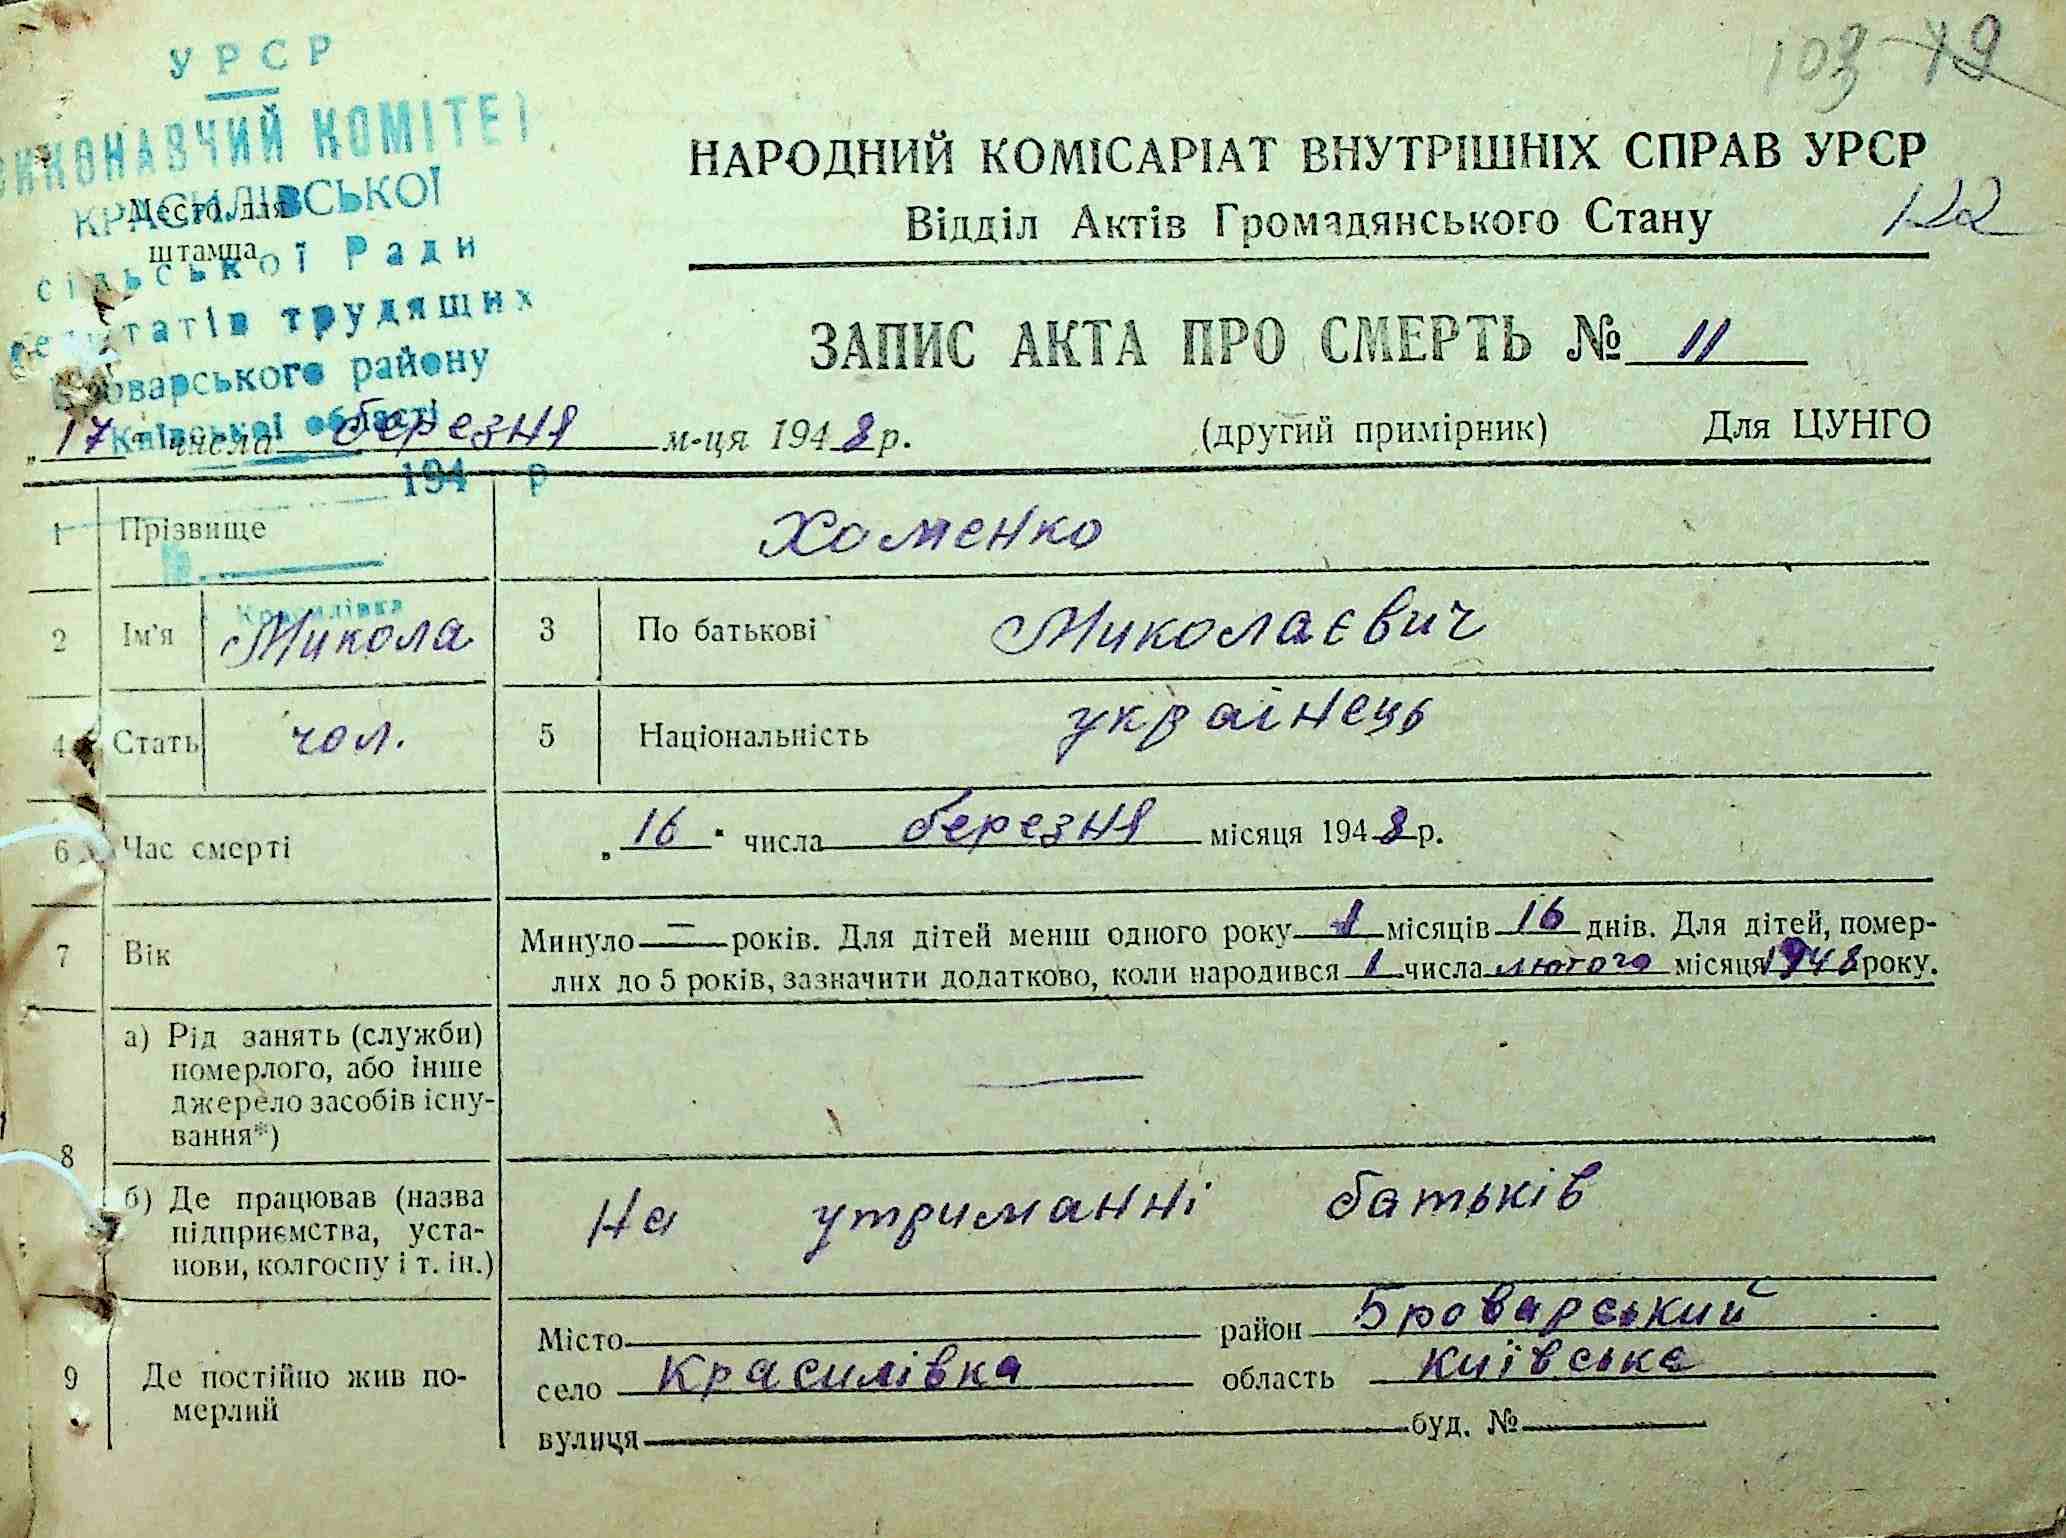 УРСР
ВИКОНАВЧИЙ КОМІТЕТ
КРАСИЛІВСЬКОЇ
сільської Ради
депутатів трудящих
Броварського району
Київської області
194 р
№
Красилівка
Место для
штампа
103 49
НАРОДНИЙ КОМІСАРІАТ ВНУТРІШНІХ СПРАВ УРСР
Відділ Актів Громадянського Стану
ЗАПИС АКТА ПРО СМЕРТЬ № 11
„17" числа березня м-ця 1948 р. (другий примірник) Для ЦУНГО
1 Прізвище Хоменко
2 Ім'я Микола 3 По батькові Миколаєвич
4 Стать чол. 5 Національність українець
6 Час смерті „16" числа березня місяця 1948 р.
7 Вік Минуло — років. Для дітей менш одного року 1 місяців 16 днів. Для дітей, помер-
лих до 5 років, зазначити додатково, коли народився 1 числа лютого місяця 1948 року.
8 а) Рід занять (служби)
померлого, або інше
джерело засобів існу-
вання*) —
б) Де працював (назва
підприємства, уста-
нови, колгоспу і т. ін.) На утриманні батьків
9 Де постійно жив по-
мерлий
Місто район Броварський
село Красилівка область київська
вулиця буд. №